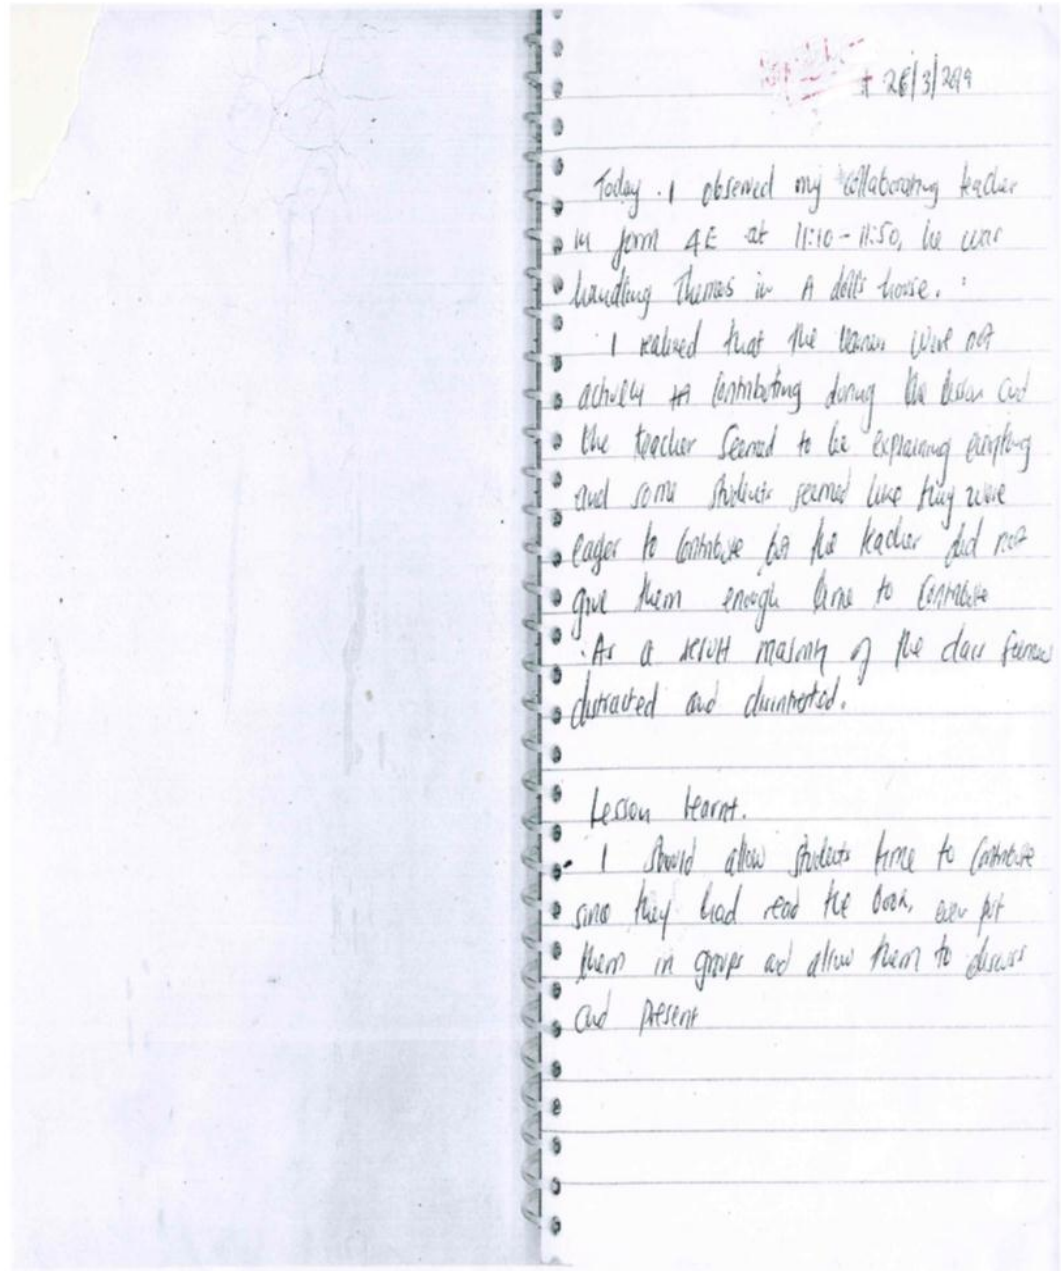 26/3/2019
Today. I observed my collaborating teacher
in form 4E at 11:10 - 11:50, he was
handling themes in A dolls house.
I realised that the learners were not
actively contributing during the lesson and
the teacher seemed to be explaining everything
and some students seemed like they were
eager to contribute but the teacher did not
give them enough time to contribute
. As a result majority of the class
distracted and
Lesson learnt.
- I should allow students time to contribute
since they had read the book, even put
them in groups and allow them to discuss
and present